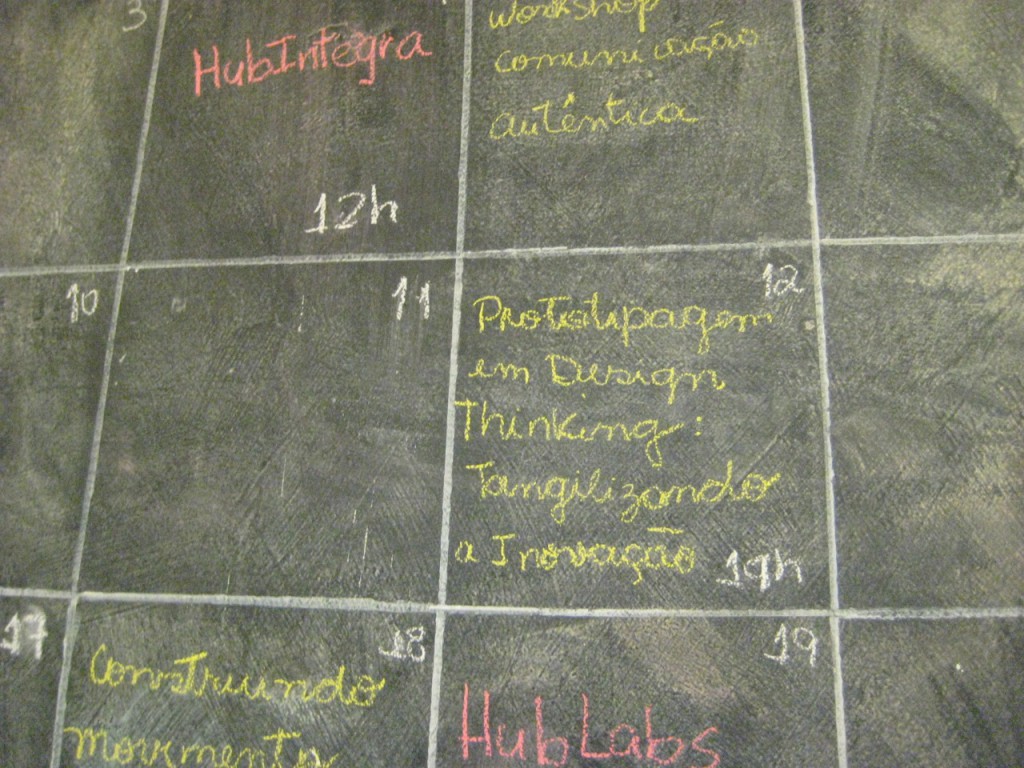 3
HubIntegra
12h
Workshop
comunicação
autêntica
10
11
12
Prototipagem
em Design
Thinking:
Tangilizando
a Inovação
19h
17
18
Construindo
movimento
19
HubLabs